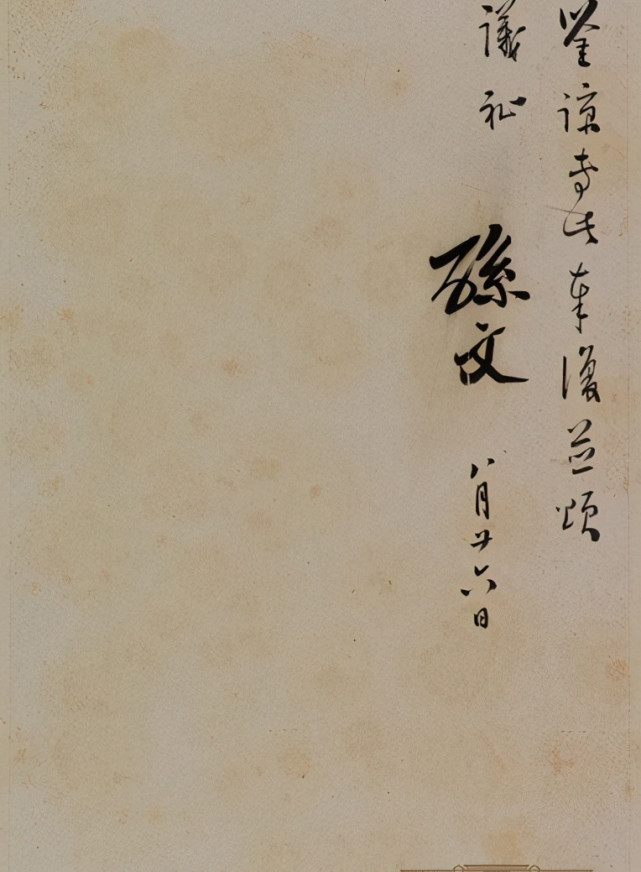 鉴諒专此奉復並頌
議祉
孫文
八月廿六日